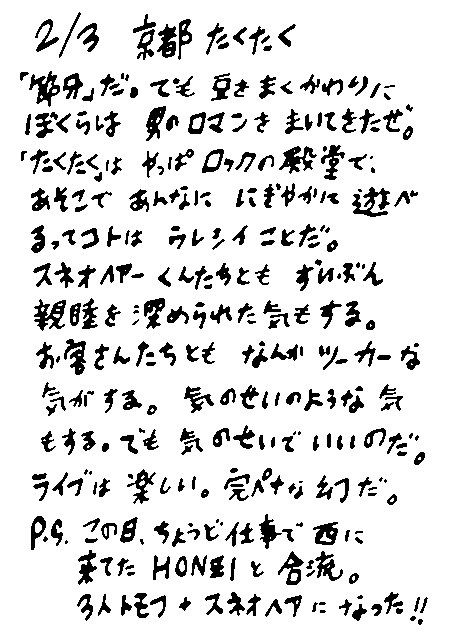 2/3 京都 たくたく
「節分」だ。でも 豆をまくかわりに
ぼくらは 男のロマンを まいてきたぜ。
「たくたく」は やっぱ ロックの殿堂で、
あそこで あんなに にぎやかに 遊べ
るってコトは ウレシイ ことだ。
スネオヘアーくんたちとも ずいぶん
親睦を 深められた 気もする。
お客さんたちとも なんか ツーカーな
気がする。 気のせいのような 気
もする。でも 気のせいで いいのだ。
ライブは 楽しい。完ペキな 幻だ。
P.S. この日、ちょうど 仕事で 西に
来てた HONZIと 合流。
3人トモフ + スネオヘアに なった!!